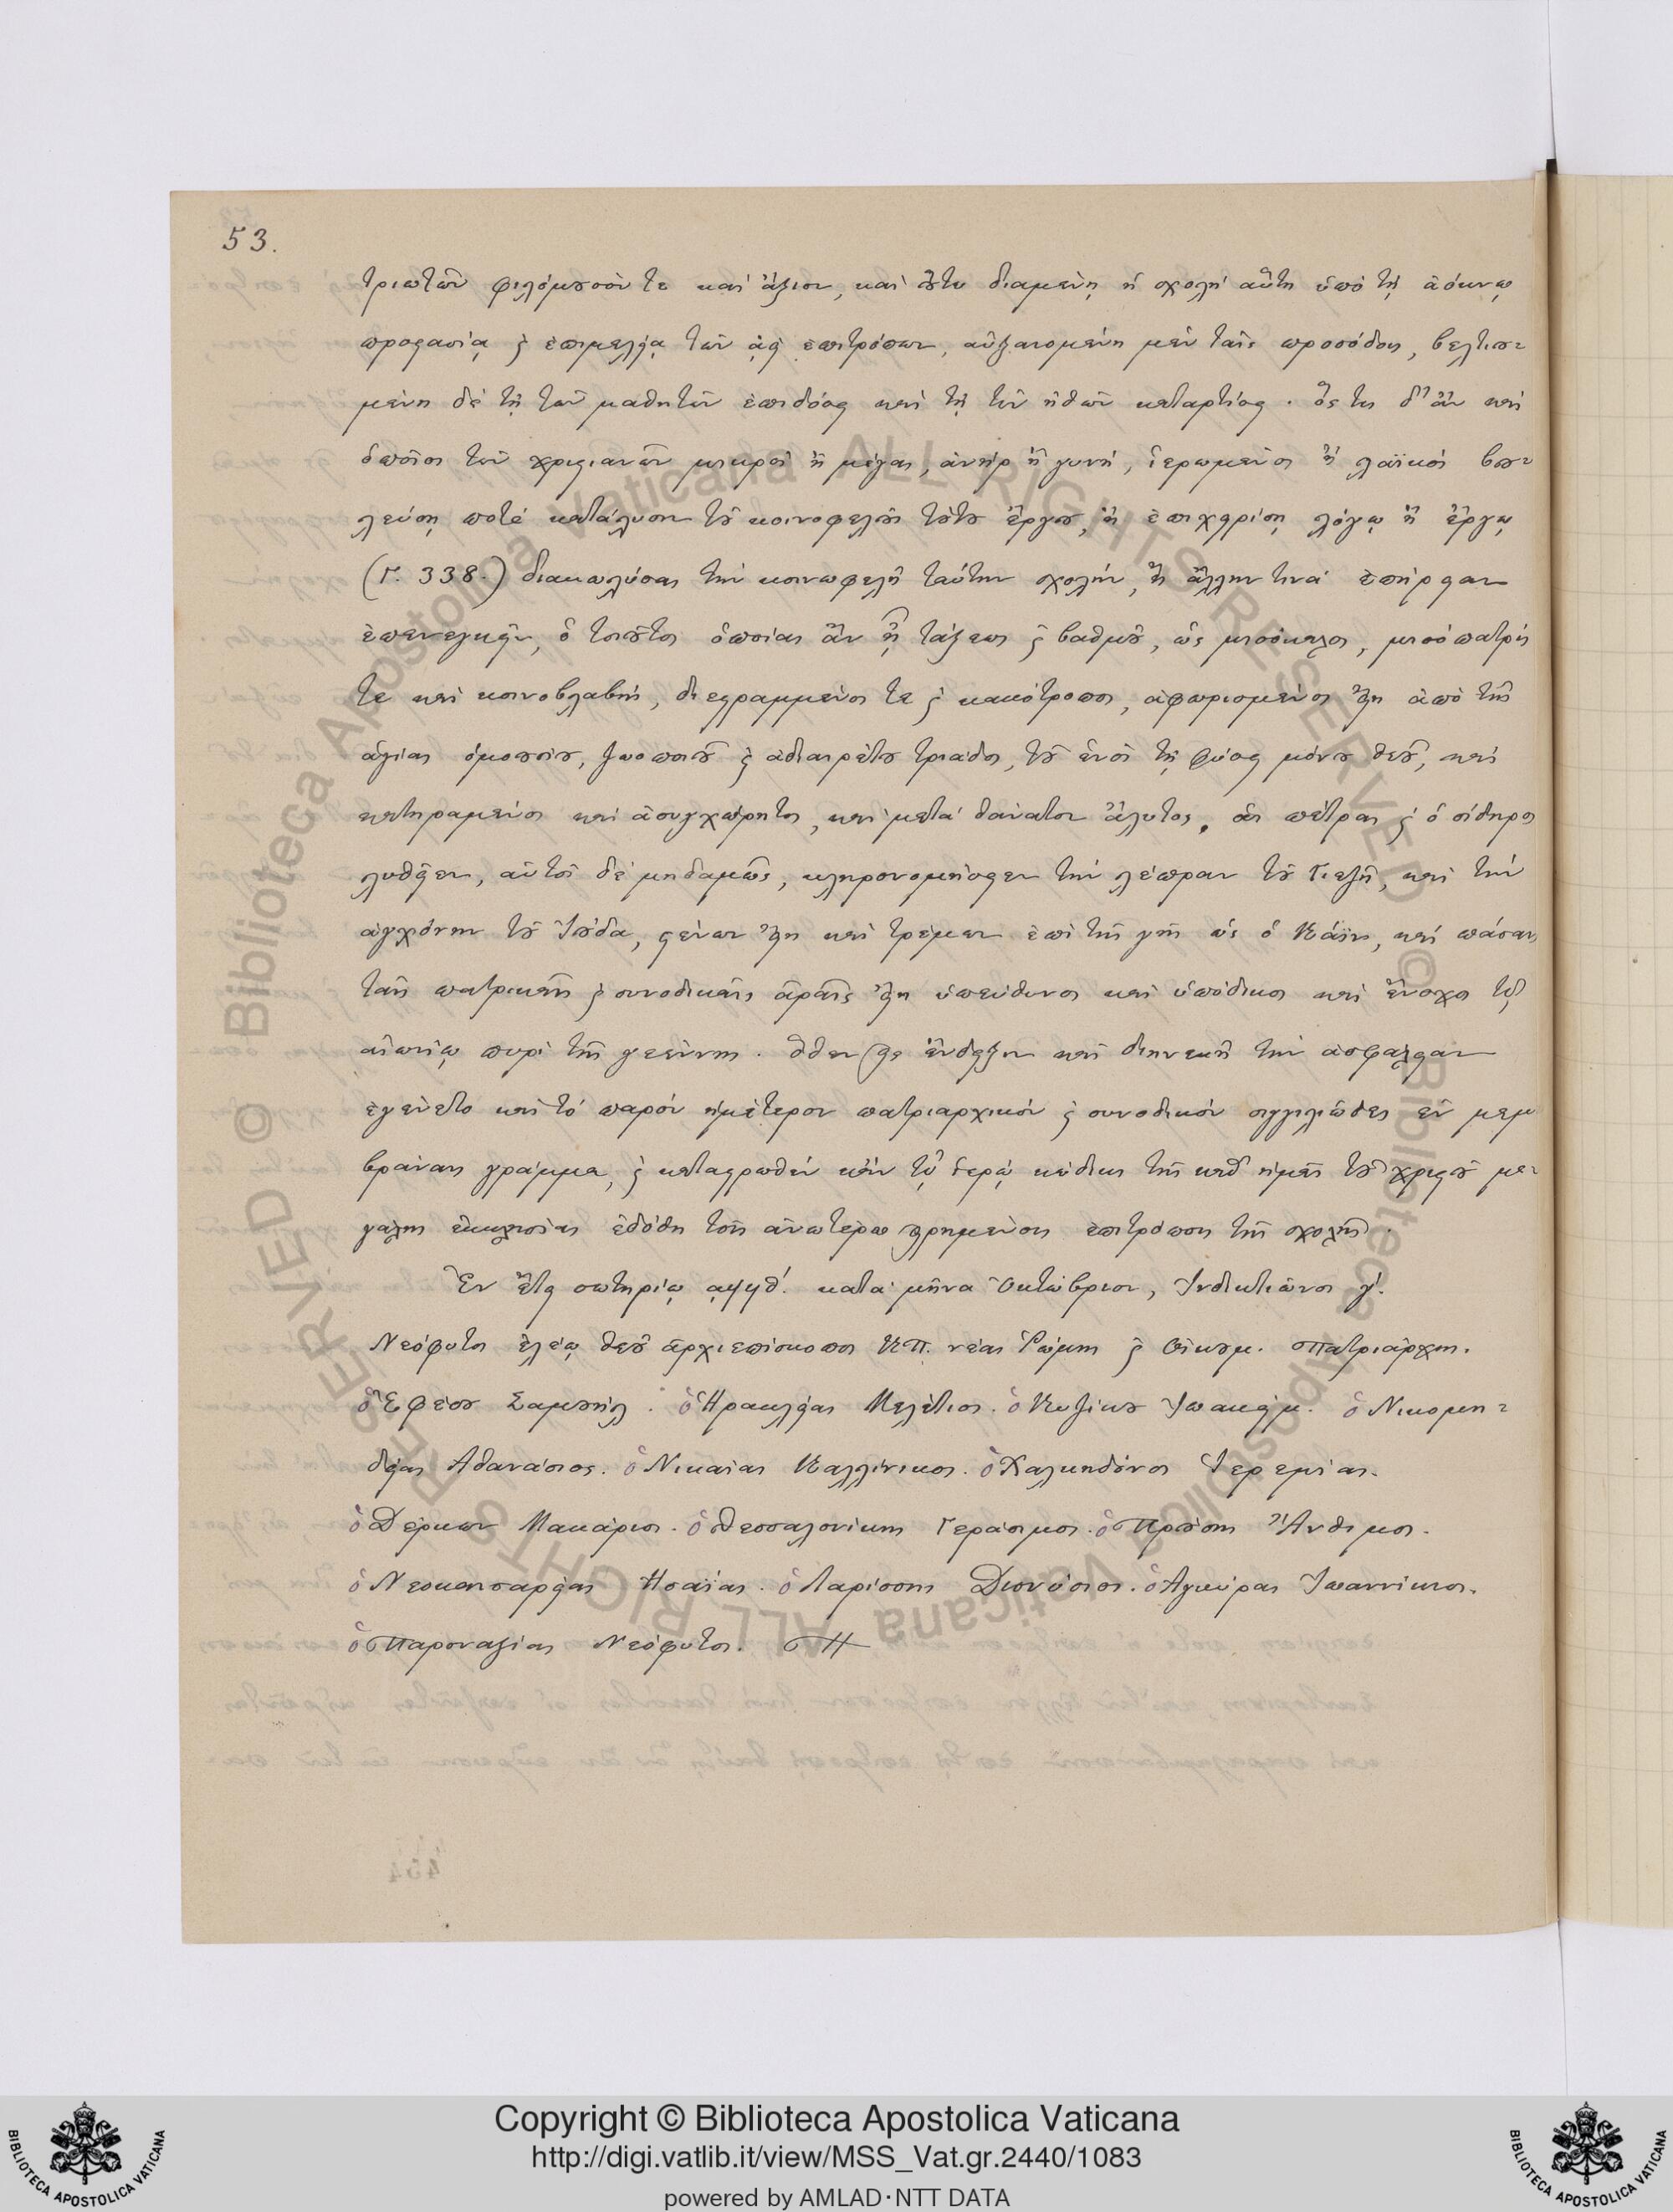 53.
τριωτῶν φιλόμουσόν τε καὶ ἄξιον, καὶ οὕτω διαμένῃ ἡ σχολὴ αὕτη ὑπὸ τῇ ἀόκνῳ
προστασίᾳ καὶ ἐπιμελείᾳ τῶν ἀεὶ ἐπιτρόπων, αὐξανομένη μὲν ταῖς προσόδοις, βελτιου-
μένη δὲ τῇ τῶν μαθητῶν ἐπιδόσει καὶ τῇ τῶν ἠθῶν καταρτίσει. ὅς τις δ' ἂν καὶ
ὁποῖος τῶν χριστιανῶν μικρὸς ἢ μέγας, ἀνὴρ ἢ γυνή, ἱερωμένος ἢ λαϊκὸς βου-
λεύσῃ ποτὲ κατάλυσιν τοῦ κοινοφελοῦς τούτου ἔργου, ἢ ἐπιχειρίσῃ λόγῳ ἢ ἔργῳ
(Γ. 338.) διακωλύσαι τὴν κοινωφελῆ ταύτην σχολήν, ἢ ἄλλην τινὰ ἐπήρειαν
ἐπενεγκεῖν, ὁ τοιοῦτος ὁποίας ἂν ᾖ τάξεως καὶ βαθμοῦ, ὡς μισόκαλος, μισόπατρις
τε καὶ κοινοβλαβής, διεστραμμένος τε καὶ κακότροπος, ἀφωρισμένος εἴη ἀπὸ τῆς
ἁγίας ὁμοουσίου, ζωοποιοῦ καὶ ἀδιαιρέτου τριάδος, τοῦ ἑνὸς τῇ φύσει μόνου θεοῦ, καὶ
κατηραμένος καὶ ἀσυγχώρητος, καὶ μετὰ θάνατον ἄλυτος, αἱ πέτραι καὶ ὁ σίδηρος
λυθείεν, αὐτὸς δὲ μηδαμῶς, κληρονομήσειεν τὴν λέπραν τοῦ Γιεζῆ, καὶ τὴν
ἀγχόνην τοῦ Ἰούδα, στένων εἴη καὶ τρέμων ἐπὶ τῆς γῆς ὡς ὁ Κάϊν, καὶ πάσαις
ταῖς πατρικαῖς καὶ συνοδικαῖς ἀραῖς εἴη ὑπεύθυνος καὶ ὑπόδικος καὶ ἔνοχος τῷ
αἰωνίῳ πυρὶ τῆς γεέννης. ὅθεν εἰς ἔνδειξιν καὶ διηνεκῆ τὴν ἀσφάλειαν
ἐγένετο καὶ τὸ παρὸν ἡμέτερον πατριαρχικὸν καὶ συνοδικὸν σιγγιλιῶδες ἐν μεμ
βράναις γράμμα, καὶ καταστρωθὲν κἀν τῷ ἱερῷ κώδικι τῆς καθ' ἡμᾶς τοῦ χριστοῦ με-
γάλης ἐκκλησίας ἐδόθη τοῖς ἀνωτέρω εἰρημένοις ἐπιτρόποις τῆς σχολῆς.
Ἐν ἔτει σωτηρίῳ ͵αψϟθʹ. κατὰ μῆνα Ὀκτώβριον, Ἰνδικτιῶνος γʹ.
Νεόφυτος ἐλέῳ θεοῦ ἀρχιεπίσκοπος ΚΠ. νέας Ῥώμης καὶ Οἰκουμ. πατριάρχης.
ὁ Ἐφέσου Σαμουήλ. ὁ Ἡρακλείας Μελέτιος. ὁ Κυζίκου Ἰωακείμ. ὁ Νικομη-
δείας Ἀθανάσιος. ὁ Νικαίας Καλλίνικος. ὁ Χαλκηδόνος Ἱερεμίας.
ὁ Δέρκων Μακάριος. ὁ Θεσσαλονίκης Γεράσιμος. ὁ Προύσης Ἄνθιμος.
ὁ Νεοκαισαρείας Ἡσαΐας. ὁ Λαρίσσης Διονύσιος. ὁ Ἀγκύρας Ἰωαννίκιος.
ὁ Παροναξίας Νεόφυτος.
Copyright © Biblioteca Apostolica Vaticana
http://digi.vatlib.it/view/MSS_Vat.gr.2440/1083
powered by AMLAD·NTT DATA
BIBLIOTECA APOSTOLICA VATICANA
BIBLIOTECA APOSTOLICA VATICANA
© Biblioteca Apostolica Vaticana ALL RIGHTS RESERVED
© Biblioteca Apostolica Vaticana ALL RIGHTS RESERVED